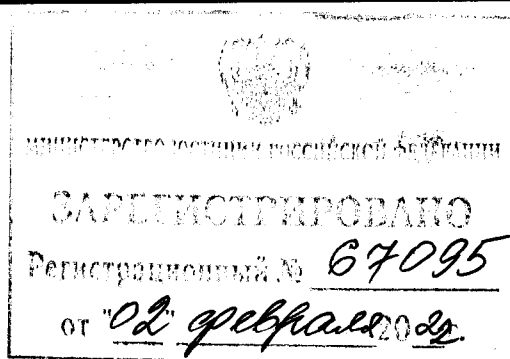 МИНИСТЕРСТВО ЮСТИЦИИ РОССИЙСКОЙ ФЕДЕРАЦИИ
ЗАРЕГИСТРИРОВАНО
Регистрационный № 67095
от "02" февраля 2022г.